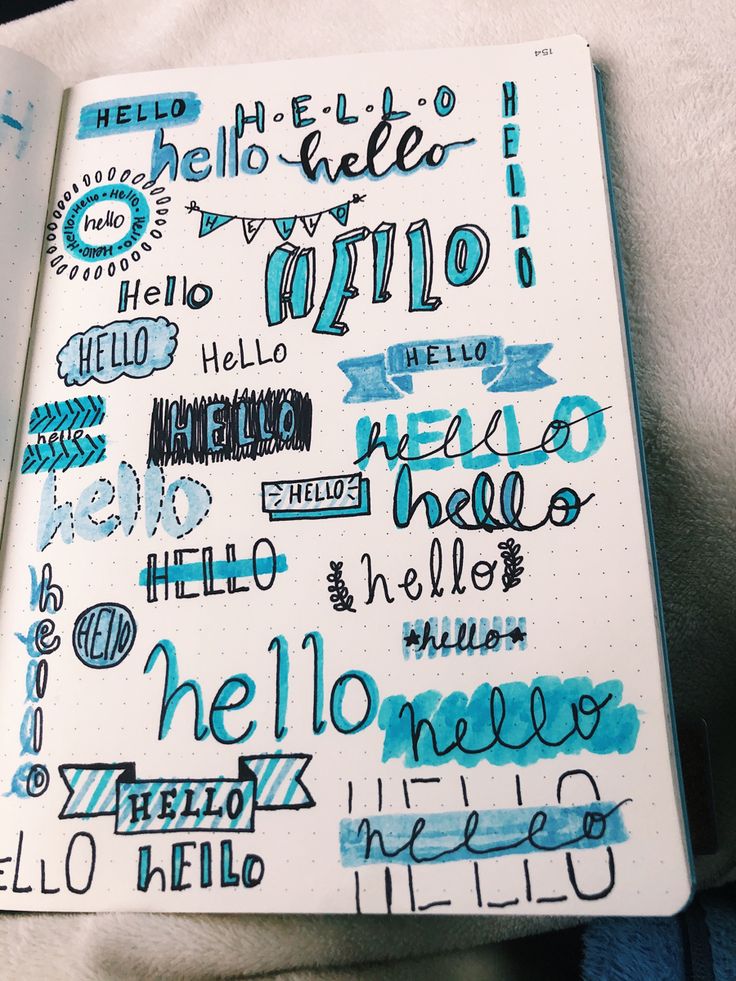 154
HELLO
H·E·L·L·O
HELLO
hello
hello
Hello • Hello • Hello • Hello • Hello •
hello
HELLO
HELLO
Hello
HELLO
HeLLo
HELLO
hello
HELLO
HELLO
hello
hello
HELLO
hello
HELLO
hello
hello
HELLO
hello
hello
hello
HELLO
HELLO
hello
HELLO
hELLO